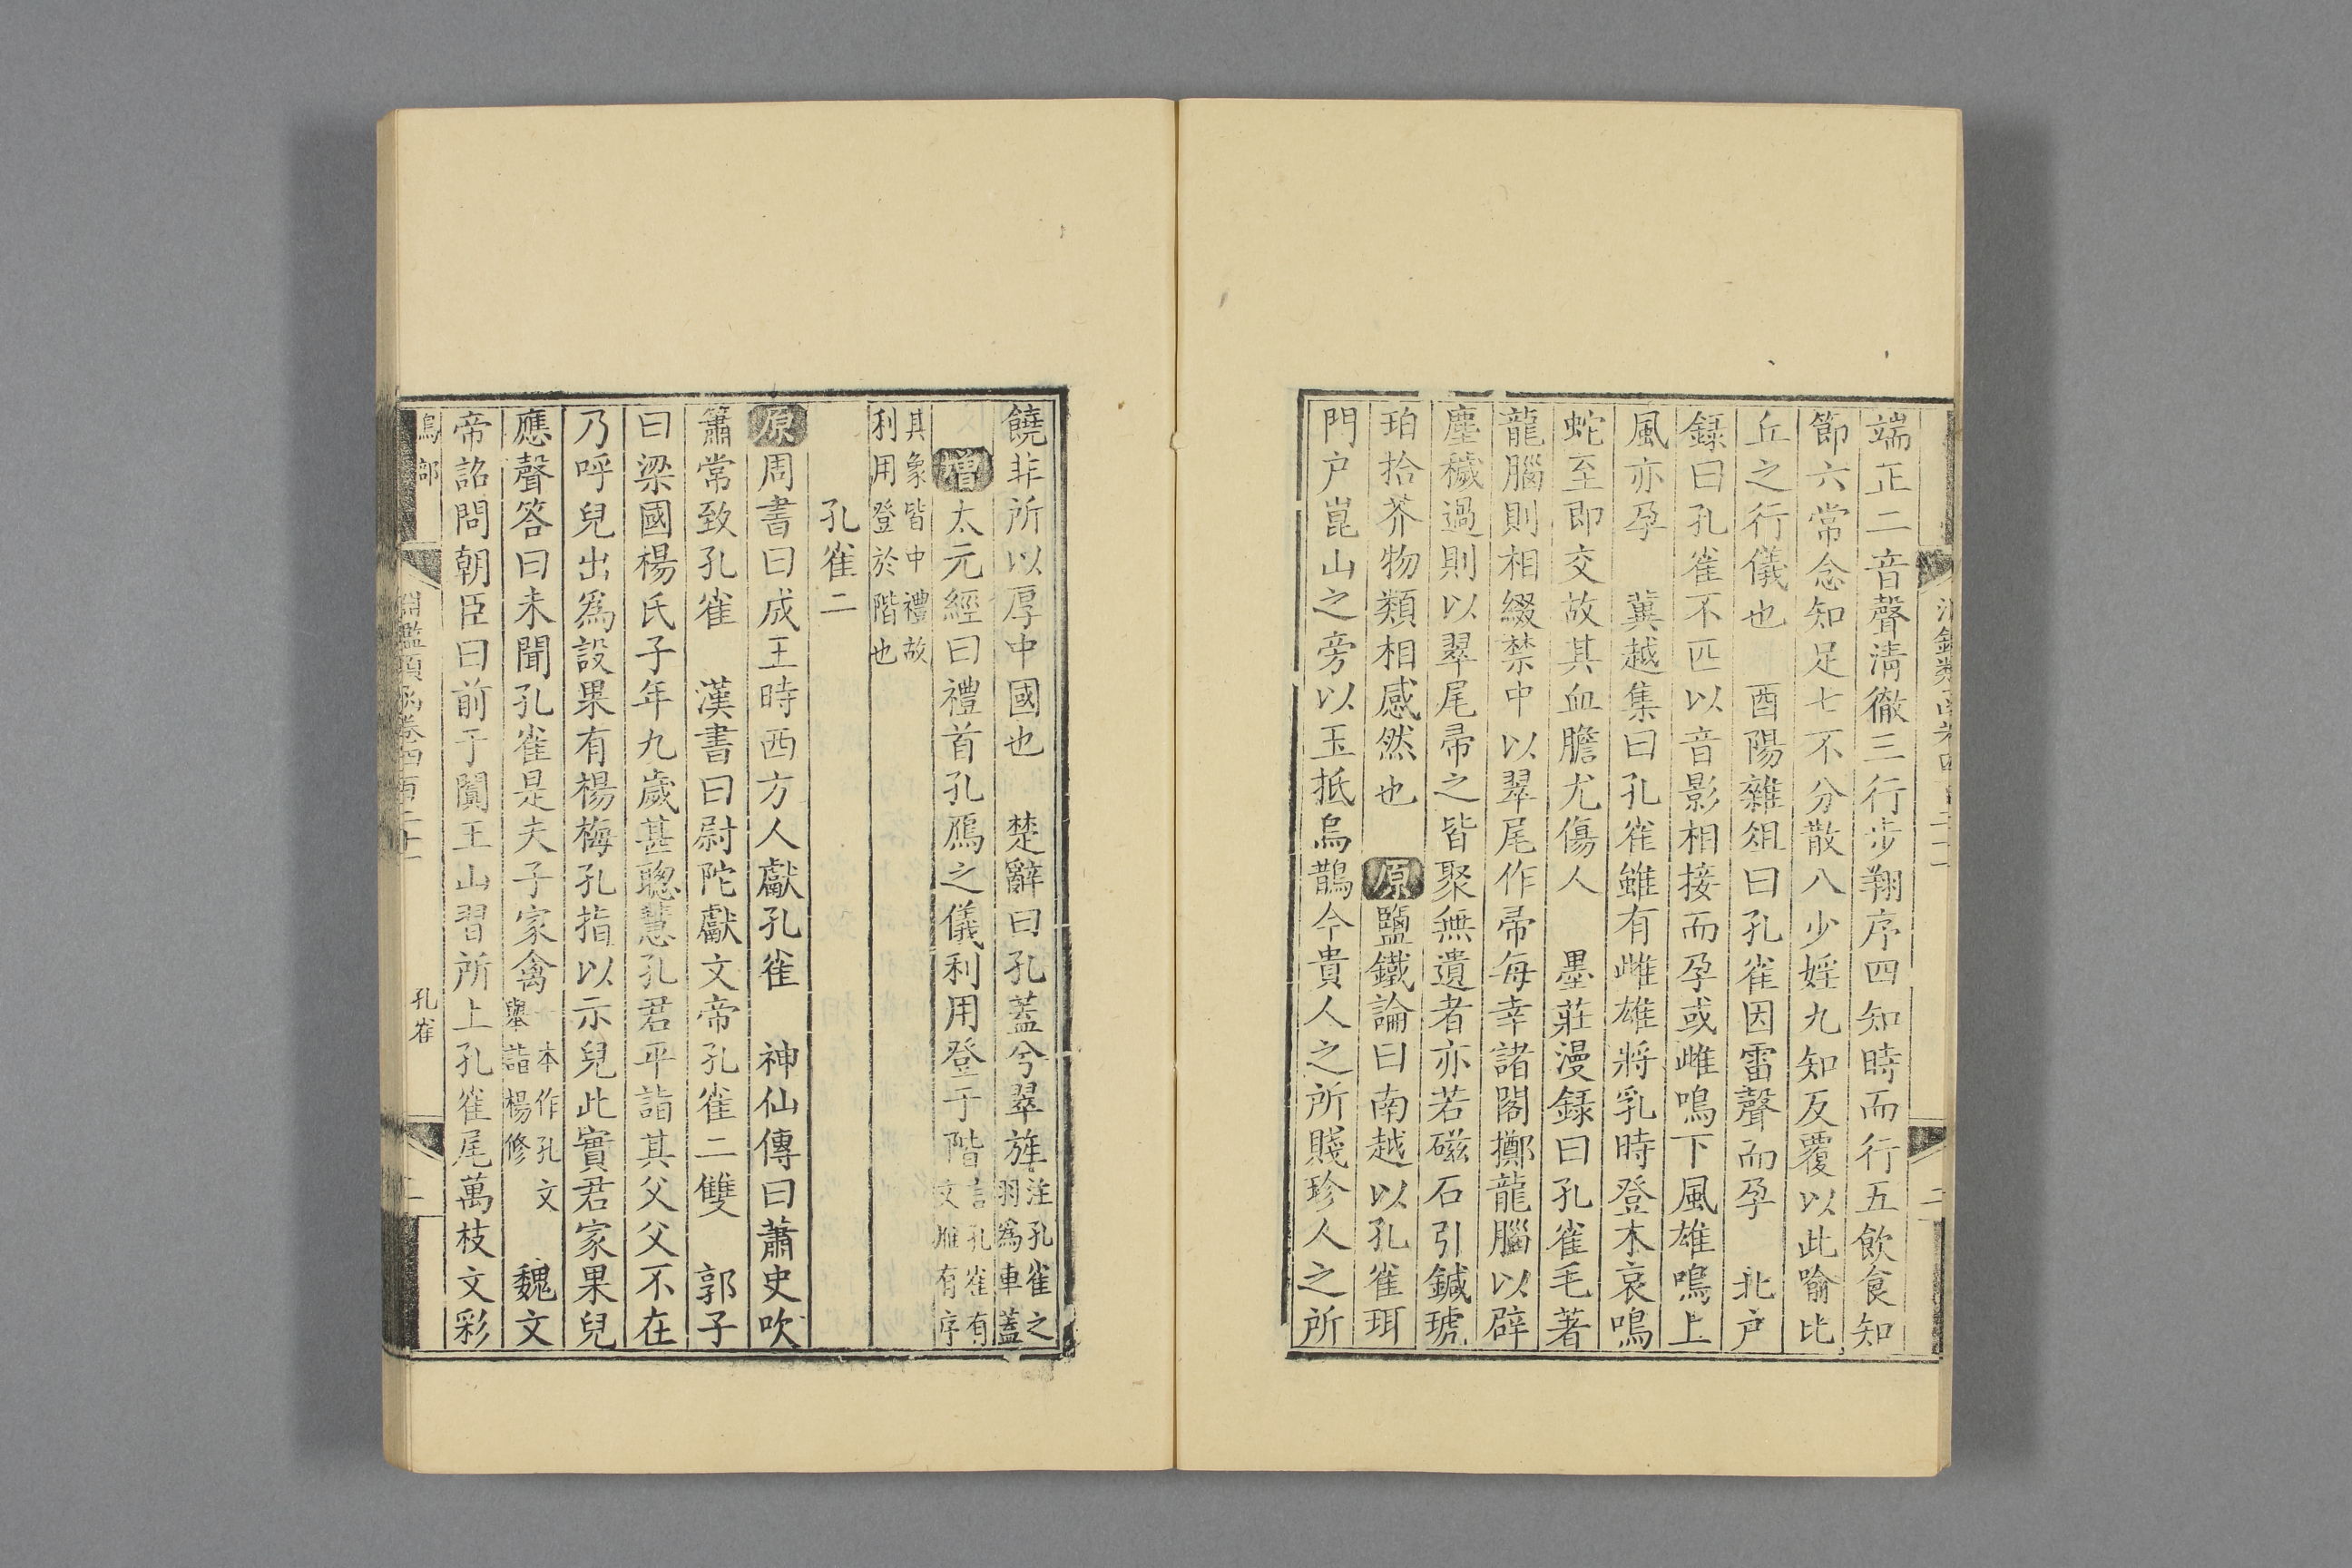 端正二音聲清徹三行步翔序四知時而行五飲食知
節六常念知足七不分散八少婬九知反覆以此喻比
丘之行儀也　酉陽雜俎曰孔雀因雷聲而孕　北户
録曰孔雀不匹以音影相接而孕或雌鳴下風雄鳴上
風亦孕　冀越集曰孔雀雖有雌雄將乳時登木哀鳴
蛇至即交故其血膽尤傷人　墨莊漫録曰孔雀毛著
龍腦則相綴禁中以翠尾作帚每幸諸閣擲龍腦以辟
塵穢過則以翠尾帚之皆聚無遺者亦若磁石引鍼琥
珀拾芥物類相感然也　原鹽鐵論曰南越以孔雀珥
門户崑山之旁以玉抵烏鵲今貴人之所賤珍人之所
饒非所以厚中國也　楚辭曰孔蓋兮翠旌注孔雀之羽為車蓋
增太元經曰禮首孔鴈之儀利用登于階言孔雀有文雁有序
其象皆中禮故利用登於階也
孔雀二
原周書曰成王時西方人獻孔雀　神仙傳曰蕭史吹
簫常致孔雀　漢書曰尉陀獻文帝孔雀二雙　郭子
曰梁國楊氏子年九歲甚聰慧孔君平詣其父父不在
乃呼兒出為設果有楊梅孔指以示兒此實君家果兒
應聲答曰未聞孔雀是夫子家禽一本作孔文舉詣楊修　魏文
帝詔問朝臣曰前于闐王山習所上孔雀尾萬枝文彩
鳥部
淵鑑類函卷四百二十一
孔雀
二